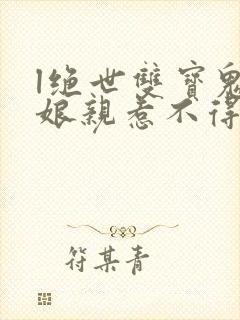 1绝世双宝鬼
娘亲惹不得
符某青